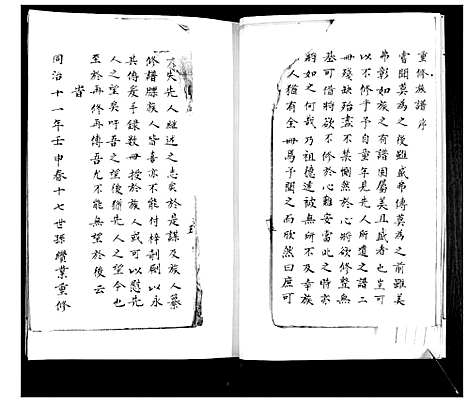 重修族譜序
嘗聞莫為之後雖盛弗傳莫為之前雖美
弗彰如族之有譜固屬美且盛者也豈可
以不修乎予自童年見先人所遺之譜二
冊殘缺殆盡不禁惻然於心將欲修整無
基可借將欲不修於心難安當此之時當
如之何哉乃祖德遠被無所不及幸族
人猶有全冊焉予聞之而欣然曰庶可
失先人繼述之志矣於是謀及族人纂
修譜牒族人皆喜亦不能付梓剞劂以永
其傳爰手錄數冊授於族人或可以慰先
人之望矣吁吾之望後猶先人之望今也
至於再修再傳吾尤不能無望於後云
旹
同治十一年壬申春十七世孫纘業重修